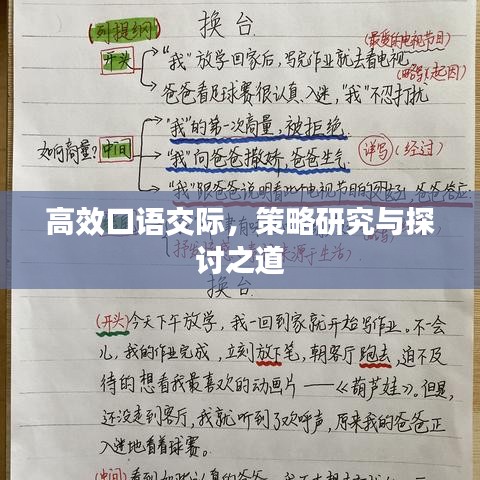 (列提纲)
换台
(最爱的电视节目)
开头
"我"放学回家后,写完作业就去看电视
(略写)(起因)
爸爸看足球赛很认真、入迷,"我"不忍打扰
"我"的第一次商量,被拒绝.
如何商量?
中间
"我"向爸爸撒娇,爸爸生气
详写
(经过)
"我"跟爸爸说明看
电视节目的
爸爸答应
高效口语交际,策略研究与探
讨之道
来源于生活)
换台
(开头)今天下午放学,我一回到家就开始写作业。不一会
儿,我的作业完成,立刻放下笔,朝客厅跑去,迫不及
待的想看我最喜欢的动画片——《葫芦娃》。但是,
还没走到客厅,我就听到了欢呼声,原来我的爸爸正
入迷地看着球赛。
(中间)看到
爸爸